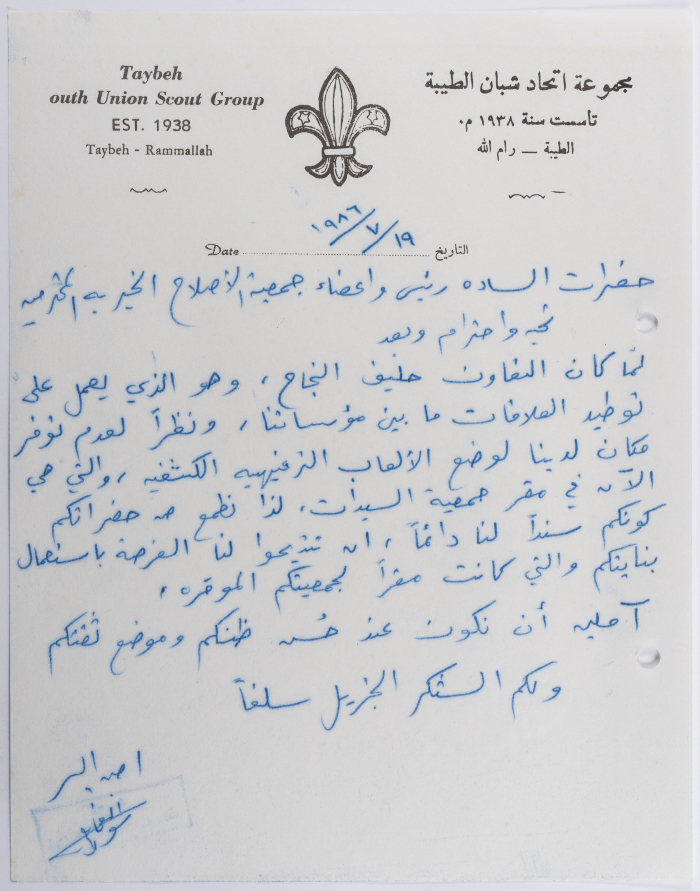 Taybeh
outh Union Scout Group
EST. 1938
Taybeh - Rammallah
مجموعة اتحاد شبان الطيبة
تأسست سنة ١٩٣٨ م.
الطيبة — رام الله
Date ١٩٨٦/٧/١٩ التاريخ
حضرات الساده رئيس واعضاء جمعية الأصلاح الخيريه المحترمين
تحيه واحترام وبعد
لمّا كان التعاون حليف النجاح، وهو الذي يعمل على
توطيد العلاقات ما بين مؤسساتنا، ونظراً لعدم توفر
مكان لدينا لوضع الألعاب الترفيهيه الكشفيه، والتي هي
الآن في مقر جمعية السيدات، لذا نطمع من حضراتكم
كونكم سنداً لنا دائماً، ان تتيحوا لنا الفرصة باستعمال
بنايتكم والتي كانت مقراً لجمعيتكم الموقره،
آملين أن نكون عند حُسن ظنكم وموضع ثقتكم
ولكم الشكر الجزيل سلفاً
امين السر